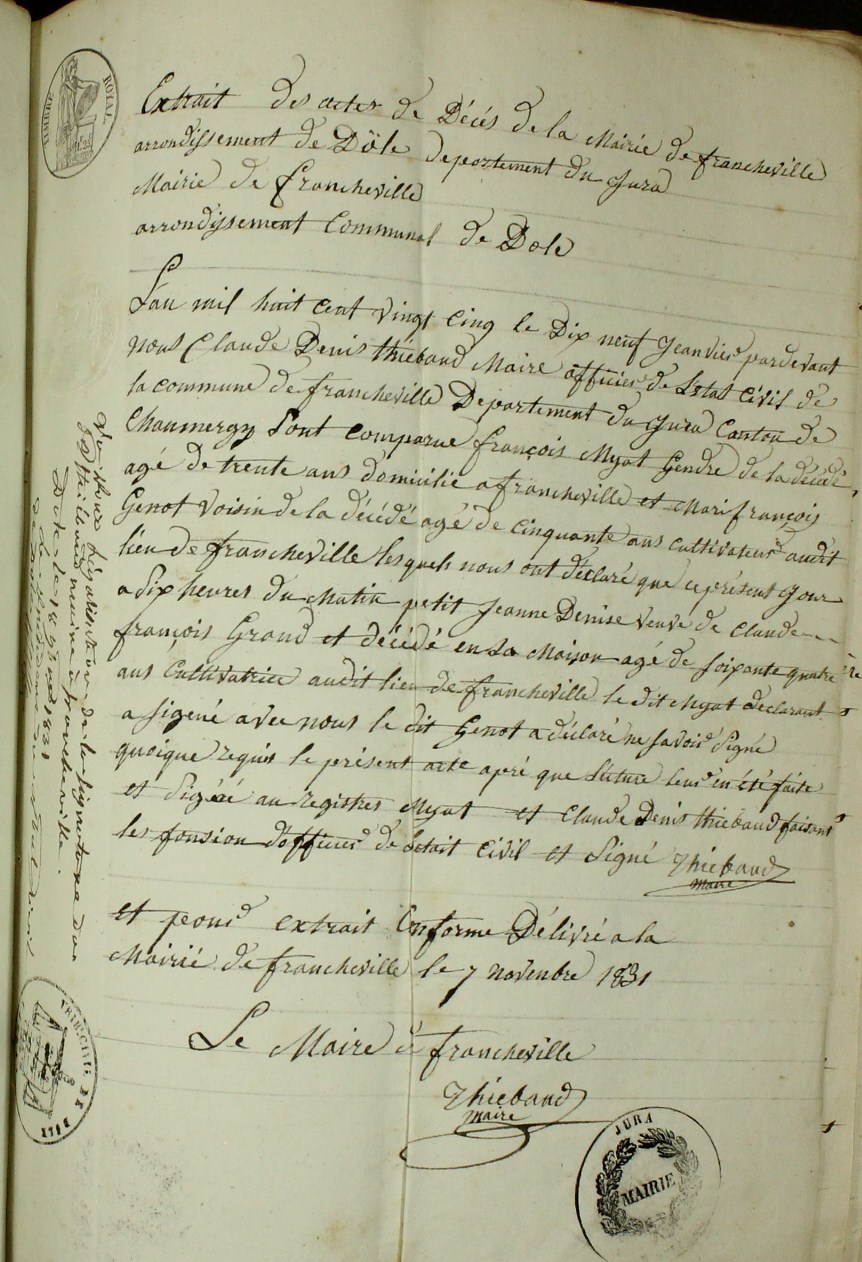 TIMBRE ROYAL
Extrait des actes de Décés de la Mairie de francheville
arrondissement de Döle departement du Jura
Mairie de francheville
arrondissement Communal de Dole
L'an mil huit cent vingt cinq le Dix neuf Jeanvier pardevant
nous Claude Denis thiébaud Maire officier de Letat Civil de
la commune de francheville Departement du Jura Canton de
Chaumergy Sont comparue françois Myat Gendre de la décédé
agé de trente ans domicilié a francheville et Mari françois
Genot voisin de la décédé agé de cinquante ans cultivateur audit
lieu de francheville lesquels nous ont déclaré que ce présent jour
a Six heures du Matin petit Jeanne Denise veuve de Claude
françois Grand et décédé en Sa Maison agé de Soixante quatre
ans Cultivatrice audit lieu de francheville le dit Myat declarant
a Sigené avec nous le dit Genot a déclaré ne savoir Signé
quoique requis le présent acte apré que lecture leur en été faite
et Signé au registres Myat et Claude Denis thiebaud faisant
les fonsion d'officier de Letait Civil et Signé Thiebaud
maire
et pour extrait Conforme Délivré a la
Mairié de francheville le 7 novenbre 1831
Le Maire de francheville
Thiebaud
maire
Vu pour légalisation de la signature du
Sr thiebaud maire à francheville.
Dole le 18 9bre 1831
TRIB. CIVIL DE DOLE
JURA
MAIRIE